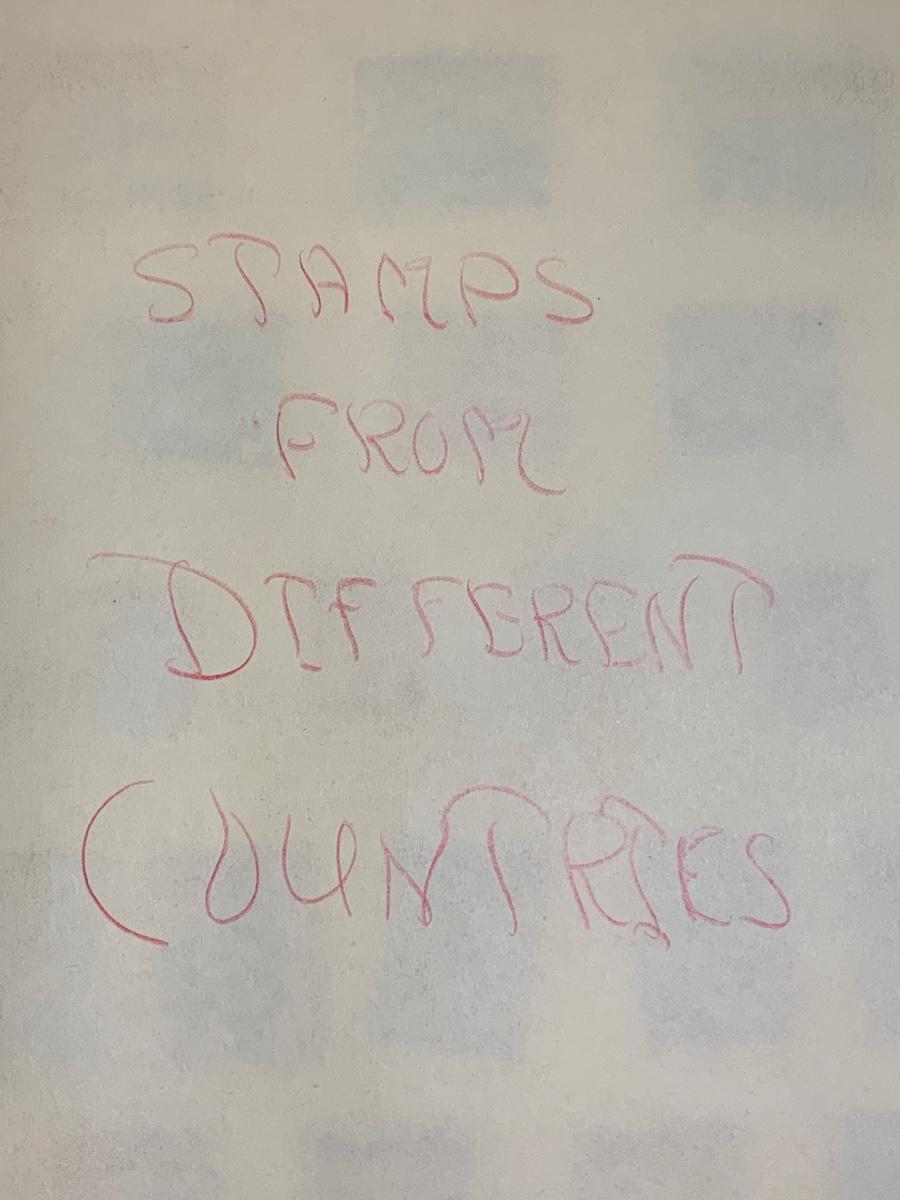 STAMPS
FROM
DIFFERENT
COUNTRIES